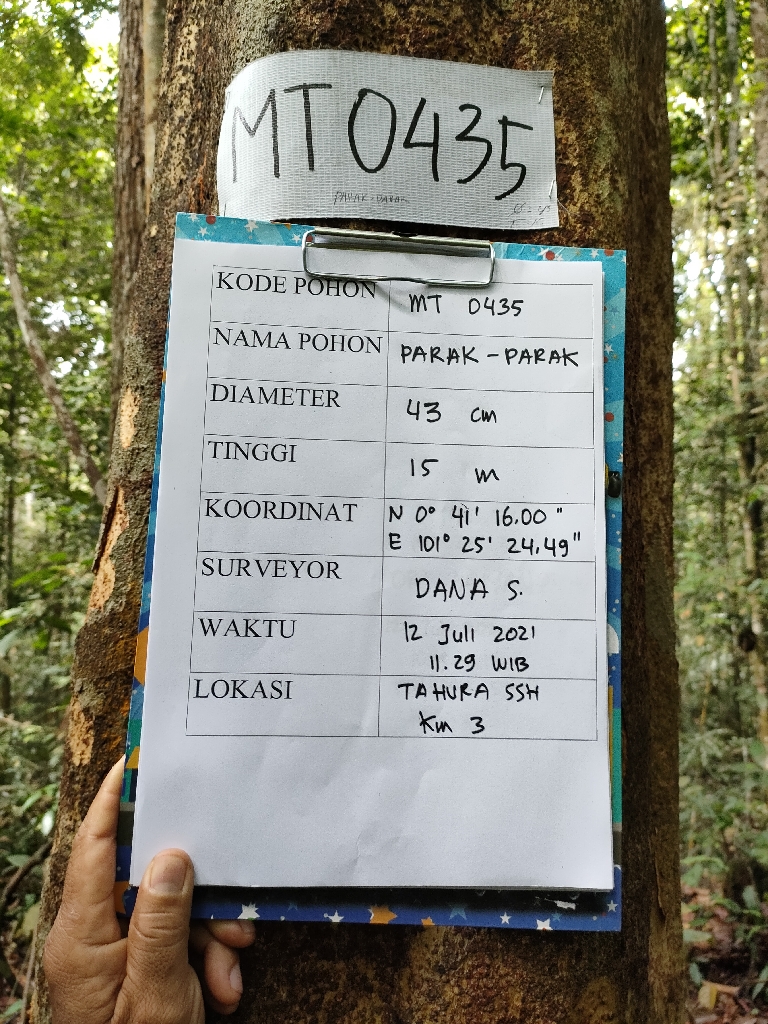 MT0435
PARAK-PARAK
KODE POHON MT 0435
NAMA POHON PARAK-PARAK
DIAMETER 43 cm
TINGGI 15 m
KOORDINAT N 0° 41' 16.00"
E 101° 25' 24.49"
SURVEYOR DANA S.
WAKTU 12 Juli 2021
11.29 WIB
LOKASI TAHURA SSH
Km 3